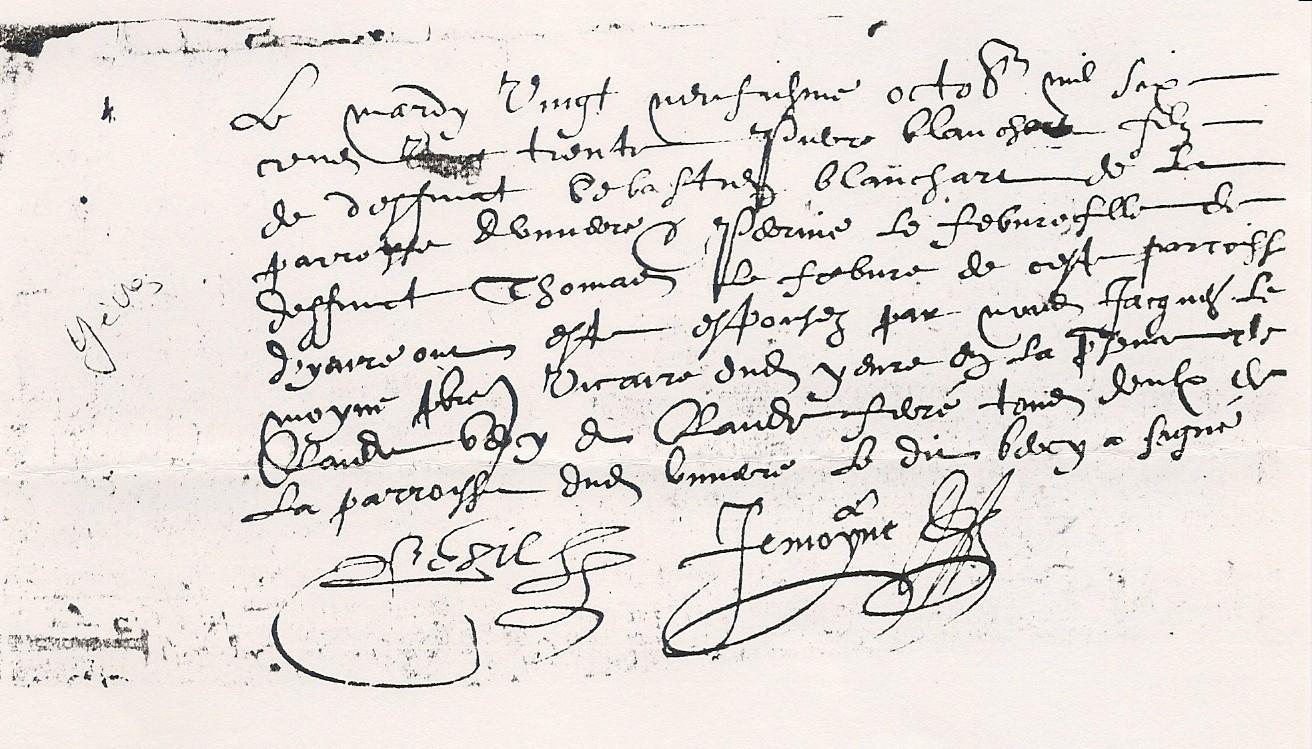 Le mardy Vingt neufiesme octobr mil six
cens trente Pierre blanchart filz
de deffunct Sebastien blanchart de La
parroisse & Perrine Le febure fille de
deffunct Thomas Le febure de ceste parroisse
dyevre ont esté espousez par nous Jacques Le
moyne pbre Vicaire dud yevre en La presence de
Claude & Claude tous deulx de
La parroisse dud Le dit a signé
Lemoyne